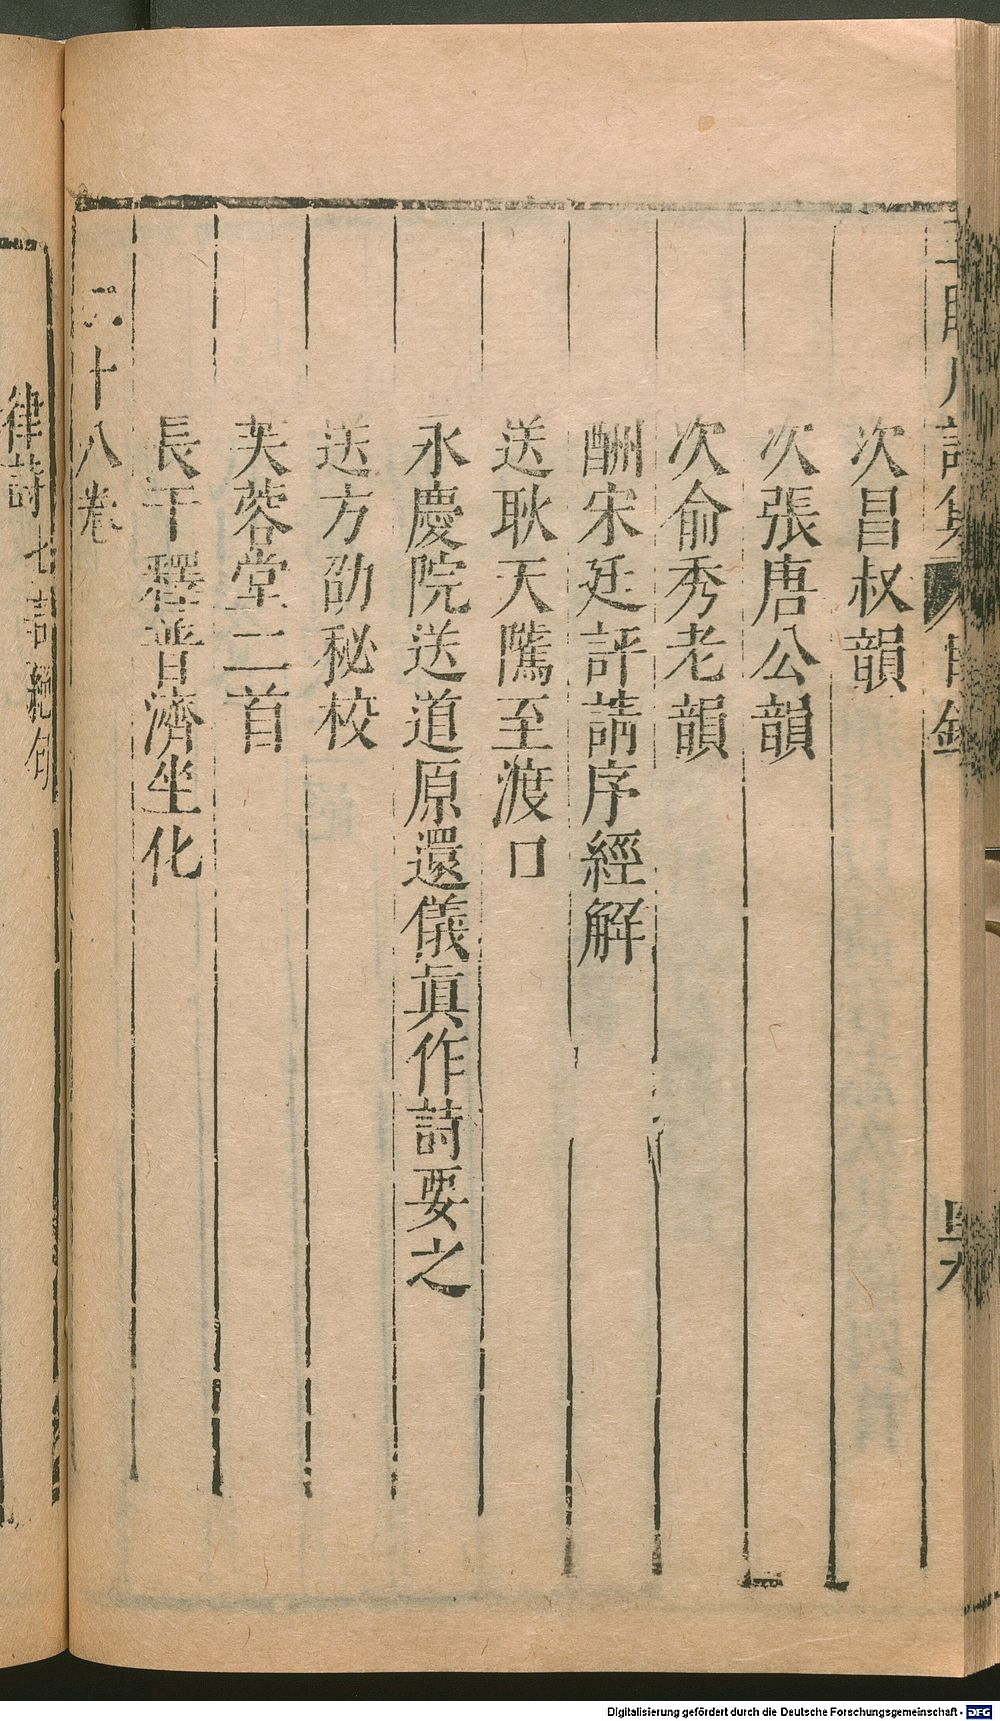 次昌叔韻
次張唐公韻
次俞秀老韻
酬宋廷評請序經解
送耿天隲至渡口
永慶院送道原還儀眞作詩要之
送方劭秘校
芙蓉堂二首
長干釋普濟坐化
十八卷
律詩 七言絕句
Digitalisierung gefördert durch die Deutsche Forschungsgemeinschaft - DFG